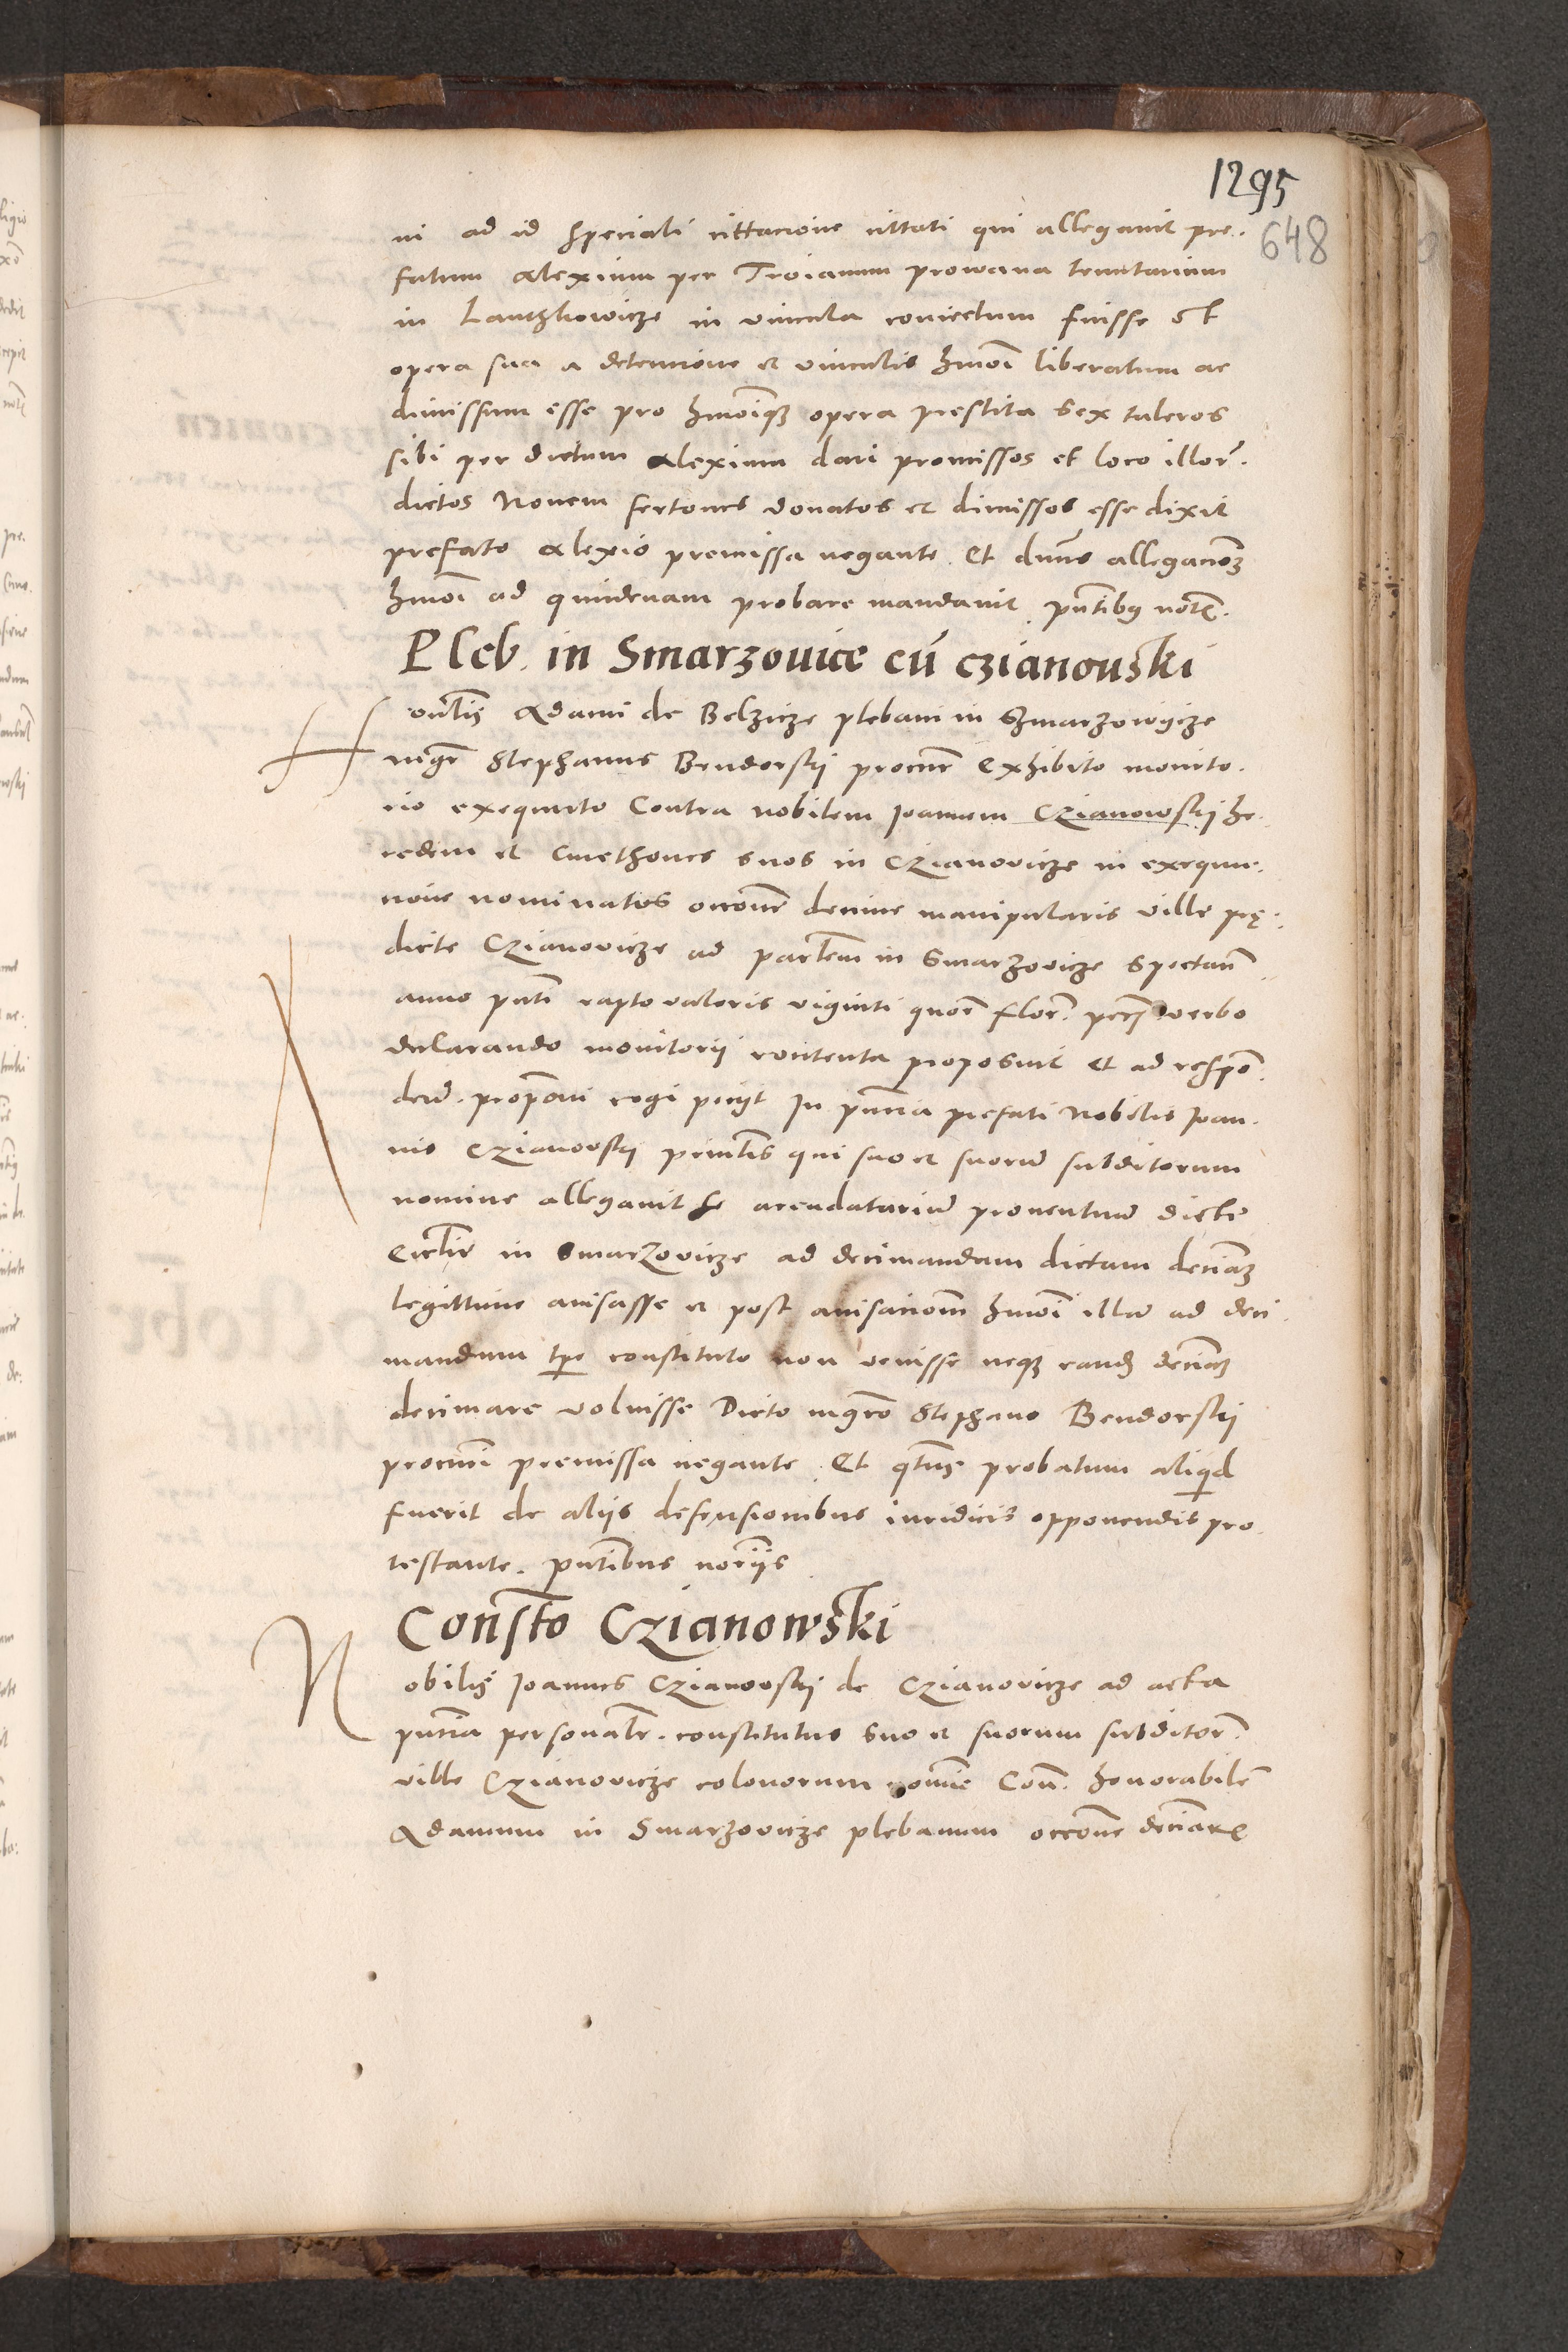 1295
648
ni ad id speciali cittacione cittati qui allegavit pre.
fatum Alexium per Troianum prowana tenutarium
in Lantzkowicze in vincula coniectum fuisse et
opera sua a detencione et vinculis hmoi liberatum ac
dimissum esse pro hmoiq3 opera prestita sex taleros
sibi per dictum Alexium dari promissos et loco illor.
dictos Novem fertones donatos et dimissos esse dixit
prefato Alexio premissa negante. Et dnus allegacionem
hmoi ad quindenam probare mandavit. pntibus not.
Pleb. in Smarzovice cu czianouski
Honlis Adami de Belzicze plebani in Szmarzowycze
mgr Stephanus Bendorskij procur exhibito monito.
rio exequuto Contra nobilem Joannem Czianowskij he.
redem et cmethones suos in Czianovicze in exequu.
cione nominatos occone decime manipularis ville pre.
dicte Czianovicze ad partem in Smarzovicze spectan
anno pnti rapte valoris viginti quor flor. verbo
declarando monitorii contenta proposuit et ad respon.
dend. cogi peciit In pntia prefati Nobilis Joan.
nis Czianovskij pntis qui suo et suorum subditorum
nomine allegavit se arendatarium proventuum dicte
Ecclie in Smarzovicze ad decimandam dictam decimam
legittime avisasse et post avisacionem hmoi illum ad deci.
mandum tpe constituto non venisse neq3 eand decimam
decimare voluisse Dicto mgro Stephano Bendorskij
procuri premissa negante. Et qtus probatum aliquid
fuerit de aliis defensionibus iuridicis opponendis pro.
testante. pntibus noriis
Consto Czianowski
Nobilis Joannes Czianovskij de Czianovicze ad acta
pntia personalr. constitutus suo et suorum subditor.
ville Czianovicze colonorum nomine Con. honorabilem
Adamum in Smarzovicze plebanum occone